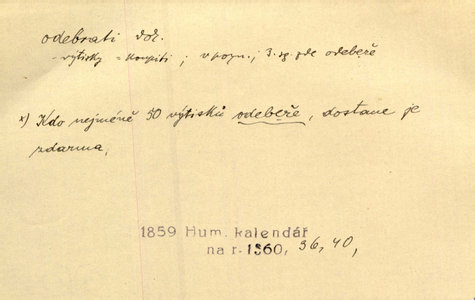 odebrati dok.
- výtisky = koupiti ; v pozn.; 3. sg. zde odebeře
x) Kdo nejméně 50 výtisků odebeře, dostane je
zdarma,
1859 Hum. kalendář
na r. 1860, 36, 40,